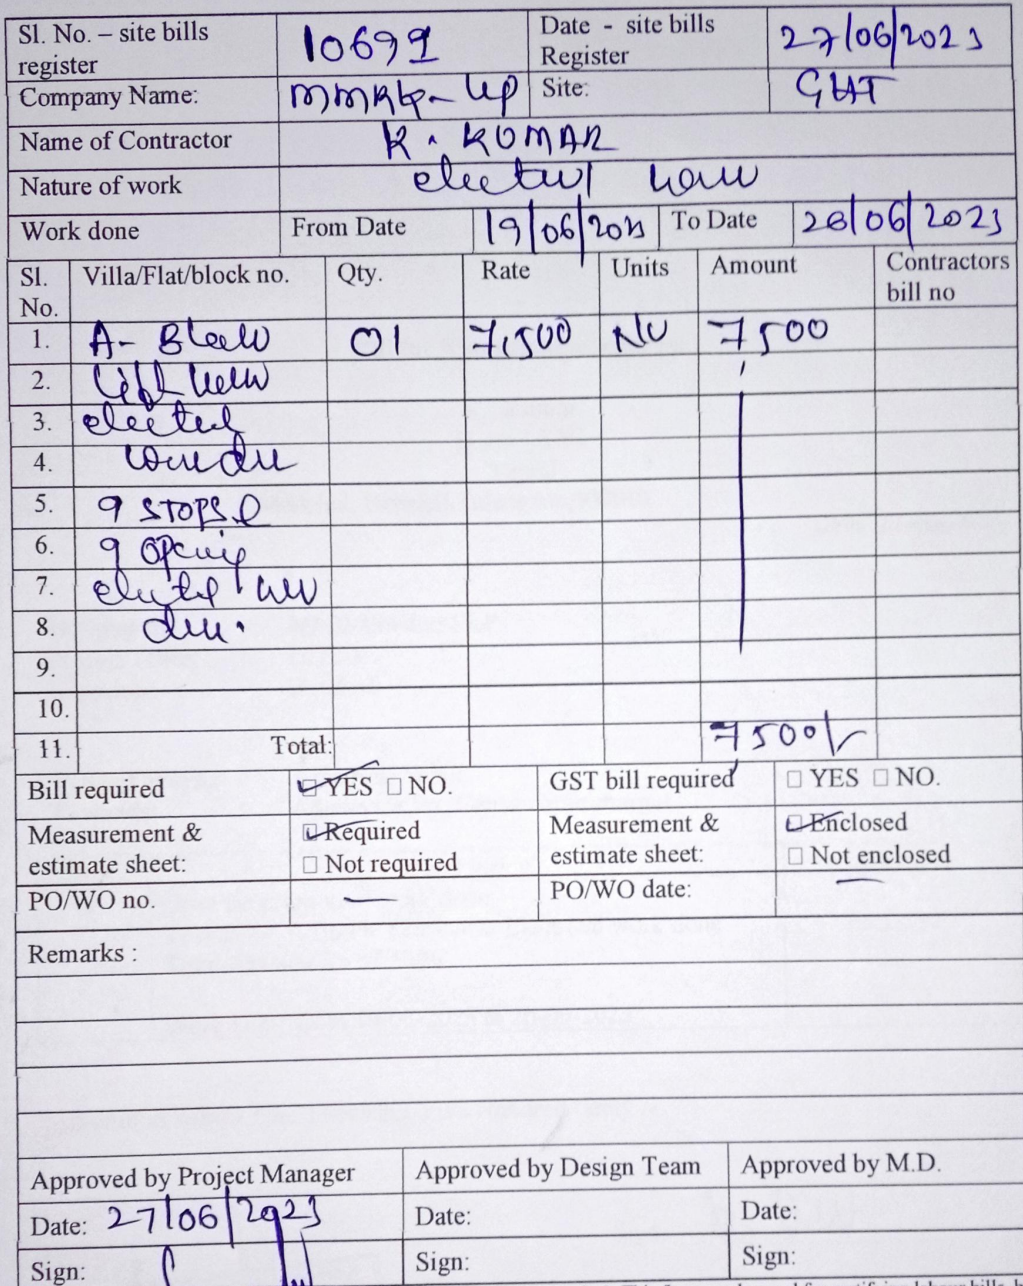 Sl. No. – site bills register 10699 Date - site bills Register 27/06/2023
Company Name: Site: GHT
Name of Contractor K. KUMAR
Nature of work
Work done From Date 19/06/2023 To Date 26/06/2023
Sl. No. Villa/Flat/block no. Qty. Rate Units Amount Contractors bill no
1. A- Block 01 7,500 No 7500
2.
3.
4.
5. 9 STOPS
6. 9 Opening
7.
8.
9.
10.
11. Total: 7500/-
Bill required ☑ YES □ NO. GST bill required □ YES □ NO.
Measurement & estimate sheet: ☑ Required □ Not required Measurement & estimate sheet: ☑ Enclosed □ Not enclosed
PO/WO no. PO/WO date:
Remarks :
Approved by Project Manager Approved by Design Team Approved by M.D.
Date: 27/06/2023 Date: Date:
Sign: Sign: Sign: